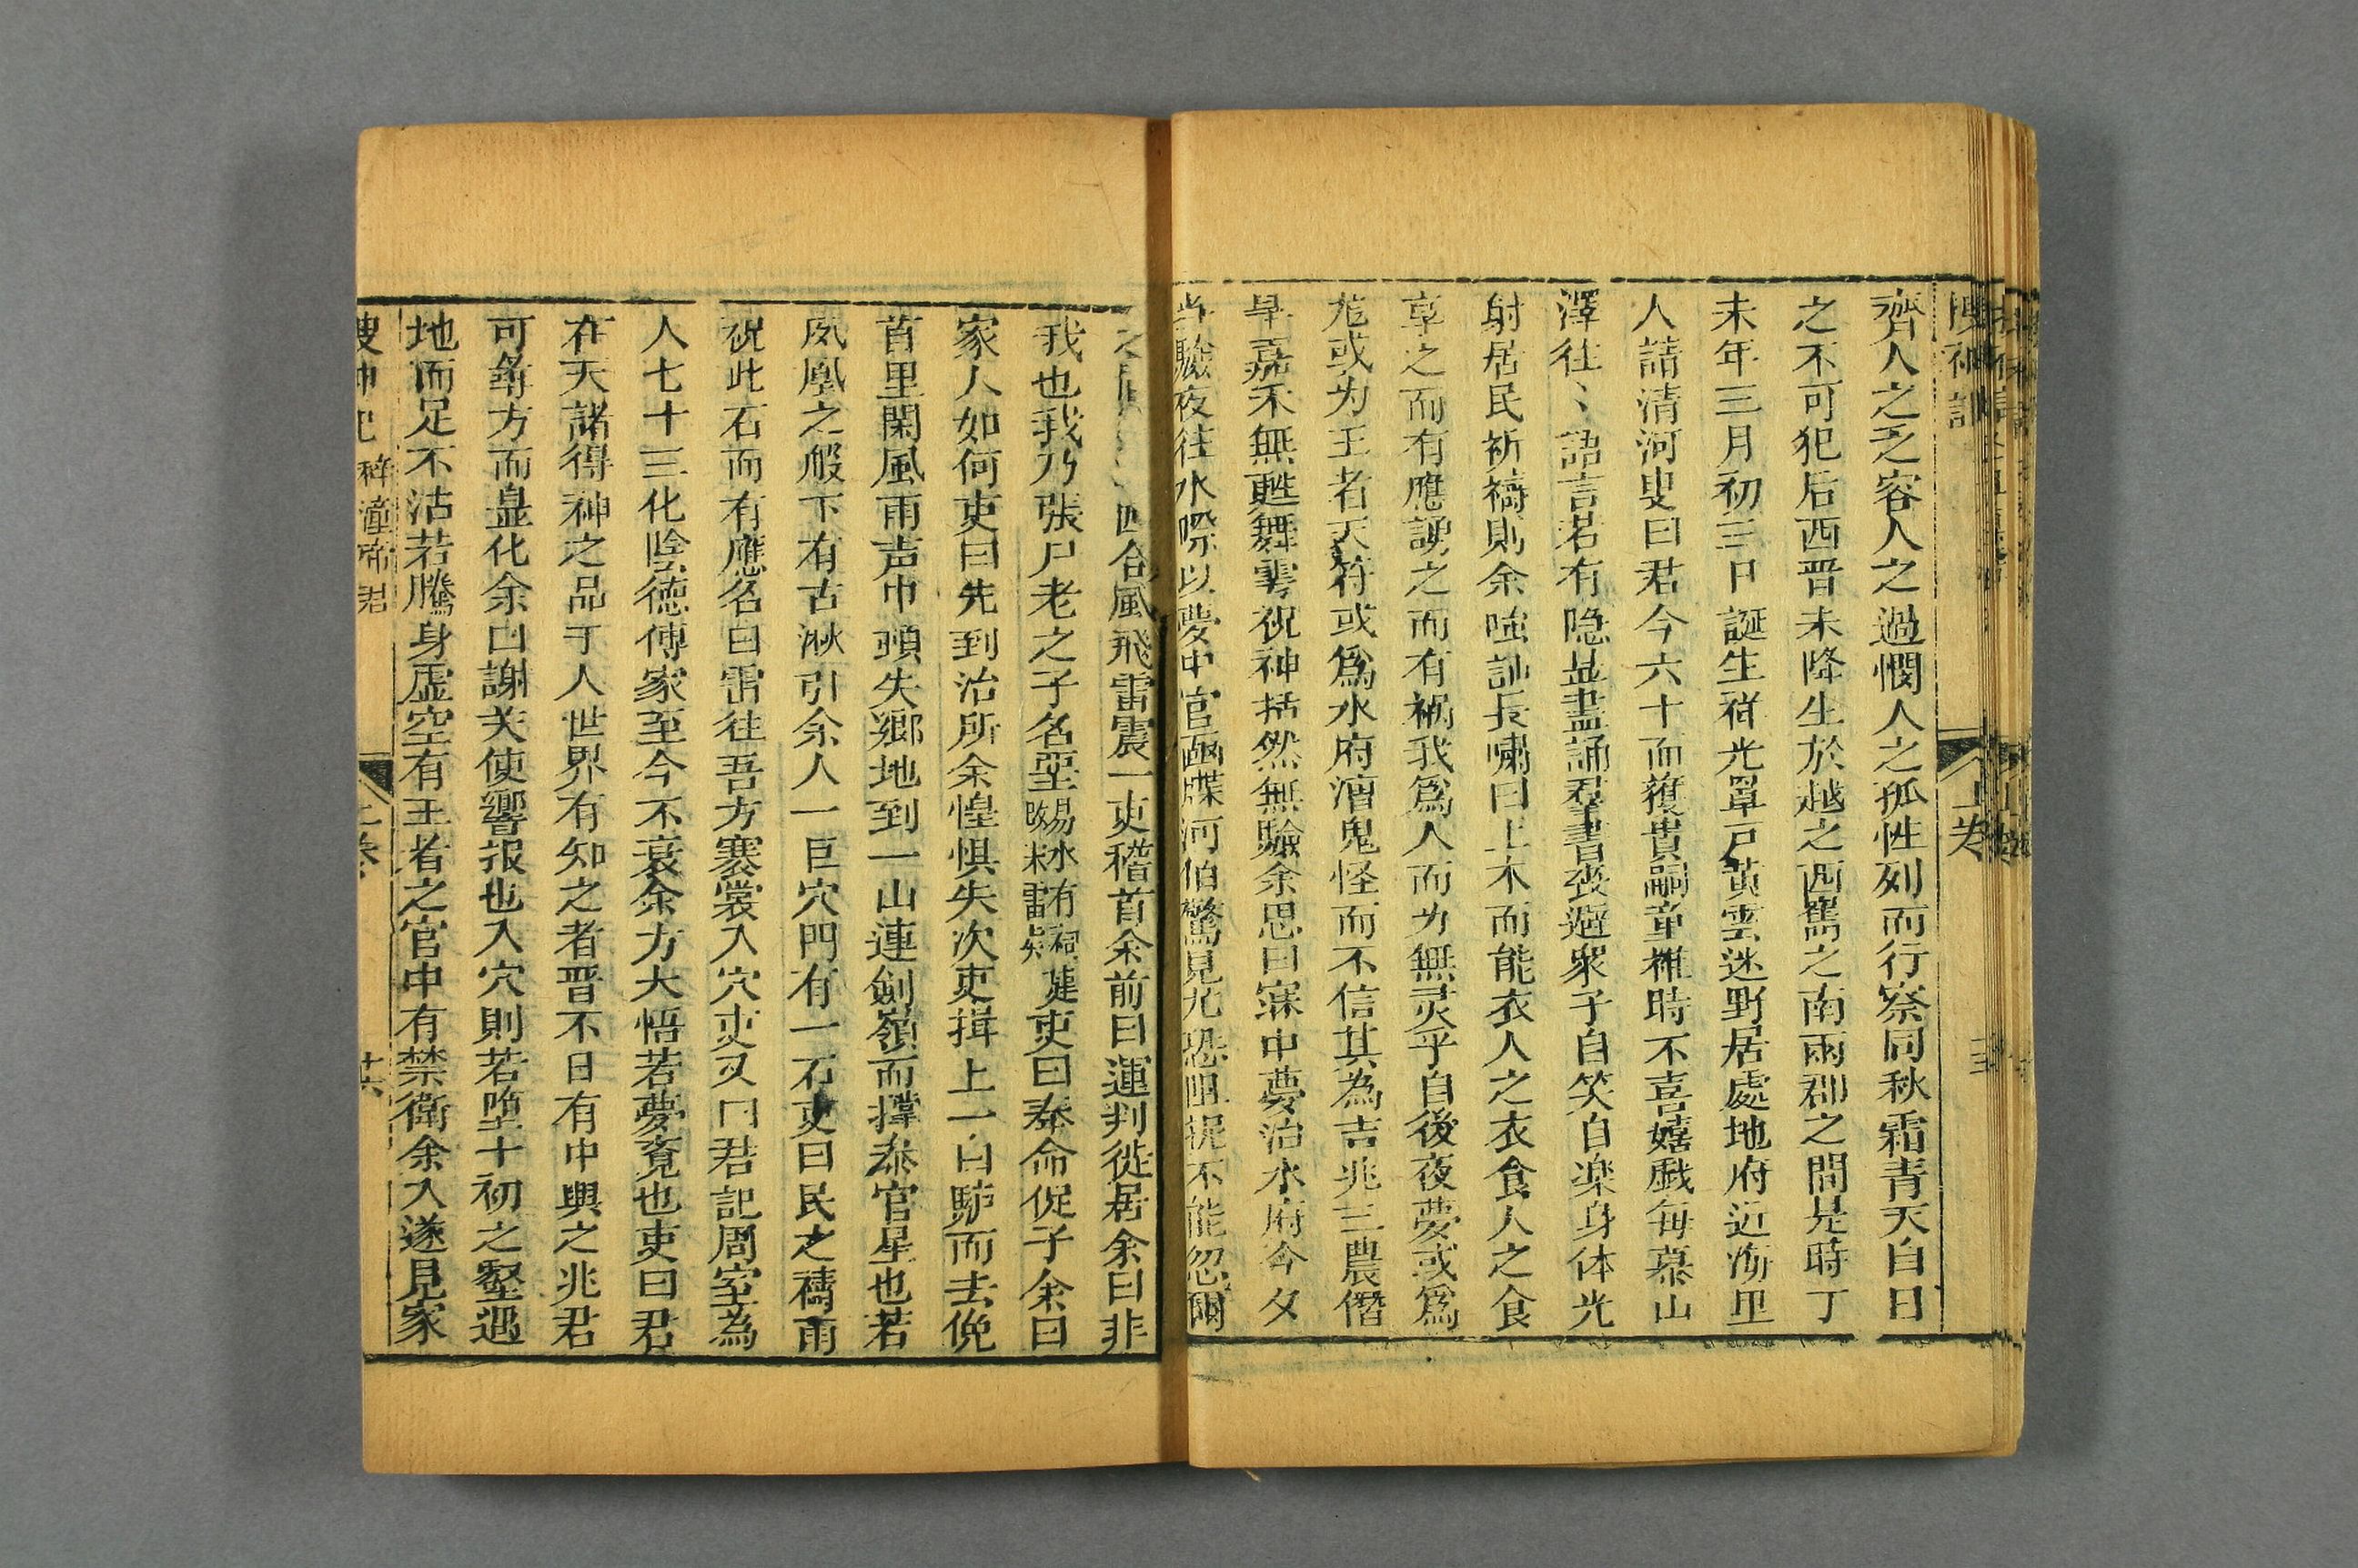 搜神記
上卷
齊人之乏容人之過憫人之孤性列而行察同秋霜青天白日
之不可犯后西晋未降生於越之西寯之南兩郡之間是時丁
未年三月初三日誕生祥光罩戸黃雲迷野居處地府近海里
人請清河叟曰君今六十而獲貴嗣童稚時不喜嬉戱每慕山
澤往、語言若有隐显晝誦羣書夜避衆子自笑自楽身体光
射居民祈禱則余咄訕長嘯曰土木而能衣人之衣食人之食
享之而有應謗之而有禍我爲人而为無灵乎自後夜夢或爲
龙或为王者天符或爲水府漕鬼怪而不信其為吉兆三農僭
旱嘉禾無甦舞雩祝神括然無驗余思曰寐中夢治水府今夕
当驗夜往水際以夢中官函牒河伯驚見尤恐阻捉不能忽爾
四合風飛雷震一吏稽首余前曰運判徙居余曰非
我也我乃張尸老之子名亞賜水有祠改末雷処褷吏曰奉命促子余曰
家人如何吏曰先到治所余惶惧失次吏揖上一白馿而去俛
首里閑風雨声中頃失鄉地到一山連劍嶺而撑泰官星也若
凤凰之㿱下有古湫引余人一巨穴門有一石吏曰民之禱雨
祝此石而有應名曰雷往吾方褰裳入穴吏又曰君記周室為
人七十三化隂徳傳家至今不衰余方大悟若夢覔也吏曰君
在天諸得神之品于人世界有知之者晋不日有中興之兆君
可尋方而显化余曰謝关使響报也入穴則若墮十初之壑遇
地而足不沾若騰身虛空有王者之官中有禁衛余入遂見家
搜神記 梓潼帝君
上卷
廿六